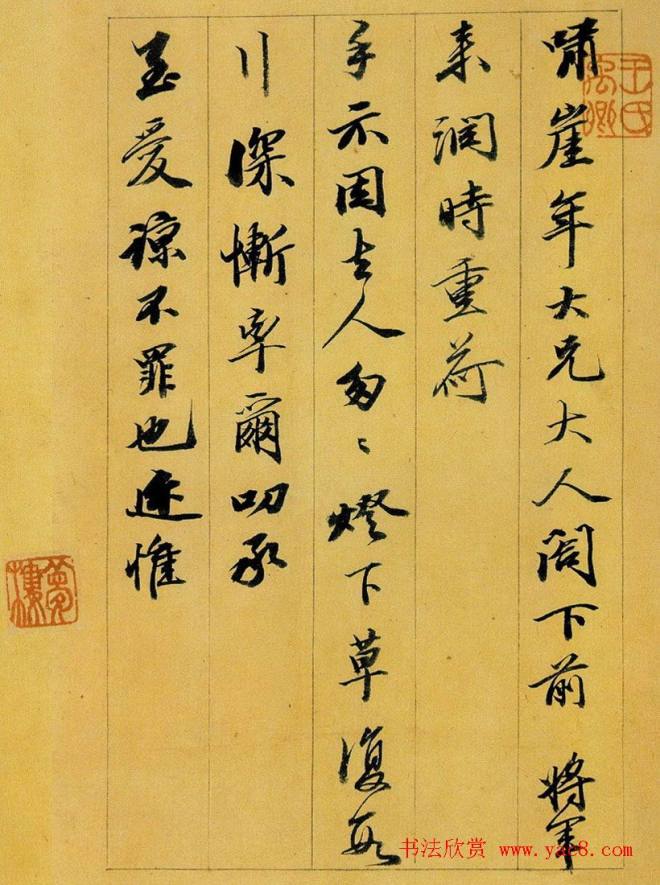 啸崖年大兄大人阁下前 将军
来润时重荷
手示因去人匆〻灯下草复数
行深惭率尔叨承
至爱谅不罪也近惟
书法欣赏 www.yac8.com